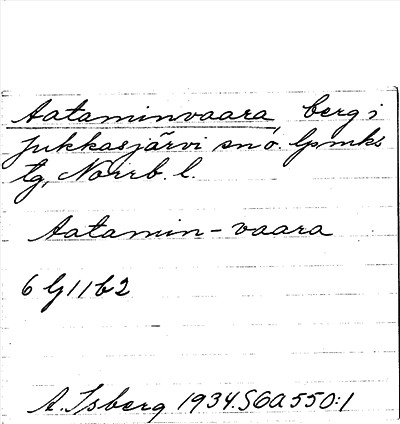 Aataminvaara, berg i
Jukkasjärvi sn o. lpmks
tg, Norrb. l.
Aatamin-vaara
6 G 11 b 2
A. Isberg 1934. SOA 550:1